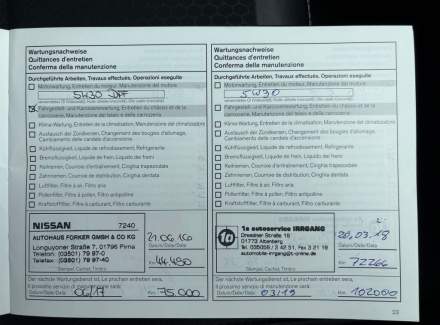 Wartungsnachweise
Quittances d'entretien
Conferma della manutenzione
Durchgeführte Arbeiten, Travaux effectués, Operazioni eseguite
Motorwartung, Entretien du moteur, Manutenzione del motore
5W30 DPF
Fahrgestell- und Karosseriewartung, Entretien du châssis et de la
carrosserie, Manutenzione del telaio e della carrozzeria
Klima-Wartung, Entretien de la climatisation, Manutenzione del climatizzatore
Austausch der Zündkerzen, Changement des bougies d'allumage,
Cambiamento delle candele d'accensione
Kühlflüssigkeit, Liquide de refroidissement, Refrigerante
Bremsflüssigkeit, Liquide de frein, Liquido dei freni
Keilriemen, Courroie d'entraînement, Cinghia trapezoidale
Zahnriemen, Courroie de distribution, Cinghia dentata
Luftfilter, Filtre à air, Filtro aria
Pollenfilter, Filtre à pollen, Filtro antipolline
Kraftstofffilter, Filtre à carburant, Filtro carburante
NISSAN 7240
AUTOHAUS FORKER GMBH & CO KG
Longuyoner Straße 7, 01796 Pirna
Telefon: (03501) 79 97-0
Telefax: (03501) 79 97-40
Stempel, Cachet, Timbro
21.06.16
Datum/Date/Data
Km 44.450
Der nächste Wartungsdienst ist, Le prochain entretien sera,
Il prossimo servizio di manutenzione sarà
Datum/Date/Data 06/17 Km 75.000
Wartungsnachweise
Quittances d'entretien
Conferma della manutenzione
Durchgeführte Arbeiten, Travaux effectués, Operazioni eseguite
Motorwartung, Entretien du moteur, Manutenzione del motore
5W30
Fahrgestell- und Karosseriewartung, Entretien du châssis et de la
carrosserie, Manutenzione del telaio e della carrozzeria
Klima-Wartung, Entretien de la climatisation, Manutenzione del climatizzatore
Austausch der Zündkerzen, Changement des bougies d'allumage,
Cambiamento delle candele d'accensione
Kühlflüssigkeit, Liquide de refroidissement, Refrigerante
Bremsflüssigkeit, Liquide de frein, Liquido dei freni
Keilriemen, Courroie d'entraînement, Cinghia trapezoidale
Zahnriemen, Courroie de distribution, Cinghia dentata
Luftfilter, Filtre à air, Filtro aria
Pollenfilter, Filtre à pollen, Filtro antipolline
Kraftstofffilter, Filtre à carburant, Filtro carburante
1a autoservice IRRGANG
Dresdner Straße 16
01773 Altenberg
Tel. 035056 / 3 42 51, Fax 3 21 19
automobile-irrgang@t-online.de
Stempel, Cachet, Timbro
20.03.18
Datum/Date/Data
Km 72266
Der nächste Wartungsdienst ist, Le prochain entretien sera,
Il prossimo servizio di manutenzione sarà
Datum/Date/Data 03/19 Km 102000
23